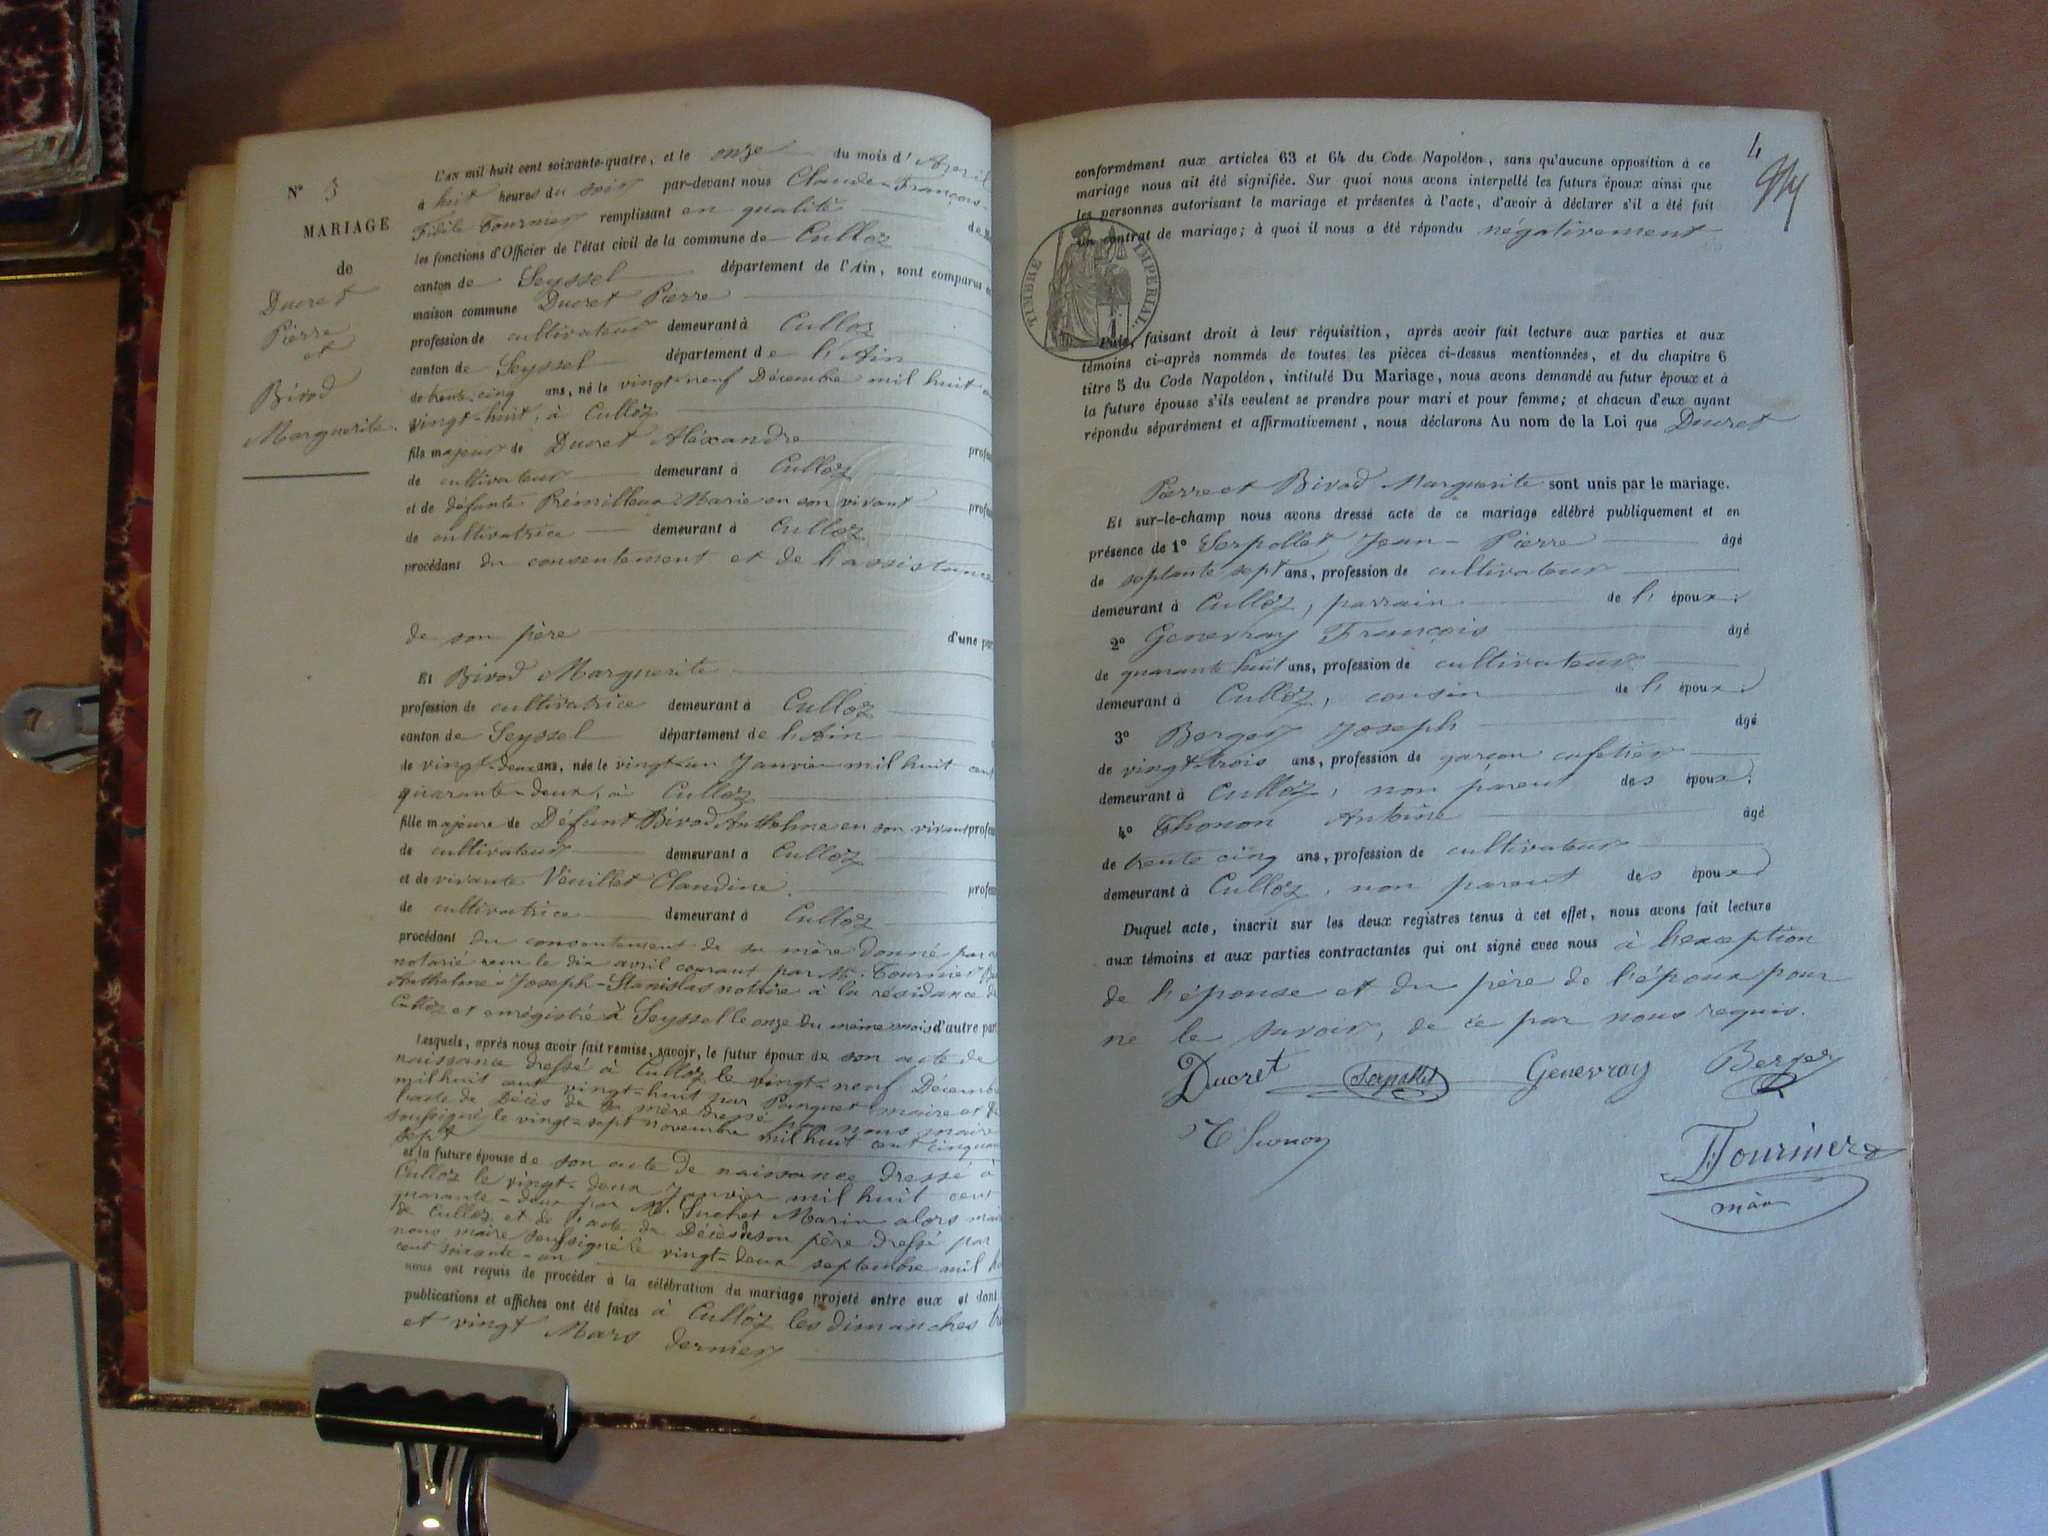 N° 3
MARIAGE
de
Ducret
Pierre
et
Bivod
Marguerite.
L'an mil huit cent soixante-quatre, et le onze du mois d'Avril
à huit heures du soir par-devant nous Claude-François-
Fidèle Fournier remplissant en qualité de
les fonctions d'Officier de l'état civil de la commune de Culloz
canton de Seyssel département de l'Ain, sont comparus
maison commune Ducret Pierre
profession de cultivateur demeurant à Culloz
canton de Seyssel département de l'Ain
de trente-cinq ans, né le vingt-neuf Décembre mil huit
vingt-huit, à Culloz
fils majeur de Ducret Aléxandre
de cultivateur demeurant à Culloz
et de défunte Prémilleux Marie en son vivant
de cultivatrice demeurant à Culloz
procédant du consentement et de l'assistance
de son père d'une
Et Bivod Marguerite
profession de cultivatrice demeurant à Culloz
canton de Seyssel département de l'Ain
de vingt-deux ans, née le vingt-un Janvier mil huit cent
quarante-deux, à Culloz
fille majeure de Défunt Bivod Anthelme en son vivant
de cultivateur demeurant à Culloz
et de vivante Veuillet Claudine
de cultivatrice demeurant à Culloz
procédant du consentement de sa mère donné par
notarié reçu le dix avril courant par Me Fournier
Anthelme-Joseph-Stanislas notaire à la résidance de
Culloz et enrégistré à Seyssel le onze du même mois d'autre part
Lesquels, après nous avoir fait remise, savoir, le futur époux de son acte de
naissance dressé à Culloz le vingt-neuf Décembre
mil huit cent vingt-huit par Panguet maire et de
l'acte de Décès de sa mère dressé par nous maire
soussigné, le vingt-sept novembre mil huit cent cinquante
sept
et la future épouse de son acte de naissance dressé à
Culloz le vingt-deux Janvier mil huit cent
quarante-deux par M. Suchet Marin alors maire
de Culloz et de l'acte de Décès de son père dressé par
nous maire soussigné le vingt-deux septembre mil
cent soixante-un
nous ont requis de procéder à la célébration du mariage projeté entre eux et dont
publications et affiches ont été faites à Culloz les dimanches
et vingt Mars dernier
4
conformément aux articles 63 et 64 du Code Napoléon, sans qu'aucune opposition à ce
mariage nous ait été signifiée. Sur quoi nous avons interpellé les futurs époux ainsi que
les personnes autorisant le mariage et présentes à l'acte, d'avoir à déclarer s'il a été fait
un contrat de mariage; à quoi il nous a été répondu négativement
TIMBRE IMPÉRIAL.
Puis, faisant droit à leur réquisition, après avoir fait lecture aux parties et aux
témoins ci-après nommés de toutes les pièces ci-dessus mentionnées, et du chapitre 6
titre 5 du Code Napoléon, intitulé Du Mariage, nous avons demandé au futur époux et à
la future épouse s'ils veulent se prendre pour mari et pour femme; et chacun d'eux ayant
répondu séparément et affirmativement, nous déclarons Au nom de la Loi que Ducret
Pierre et Bivod Marguerite sont unis par le mariage.
Et sur-le-champ nous avons dressé acte de ce mariage célébré publiquement et en
présence de 1° Serpollet, Jean-Pierre âgé
de soptante sept ans, profession de cultivateur
demeurant à Culloz, parrain de l'époux.
2° Genevray François âgé
de quarante huit ans, profession de cultivateur
demeurant à Culloz, cousin de l'époux.
3° Berger Joseph âgé
de vingt-trois ans, profession de garçon cafetier
demeurant à Culloz, non parent des époux.
4° Thonon Antoine âgé
de trente cinq ans, profession de cultivateur
demeurant à Culloz, non parent des époux
Duquel acte, inscrit sur les deux registres tenus à cet effet, nous avons fait lecture
aux témoins et aux parties contractantes qui ont signé avec nous à l'exception
de l'épouse et du père de l'époux pour
ne le savoir, de ce par nous requis.
Ducret Serpollet Genevray Berger
Thonon
Fournier
maire